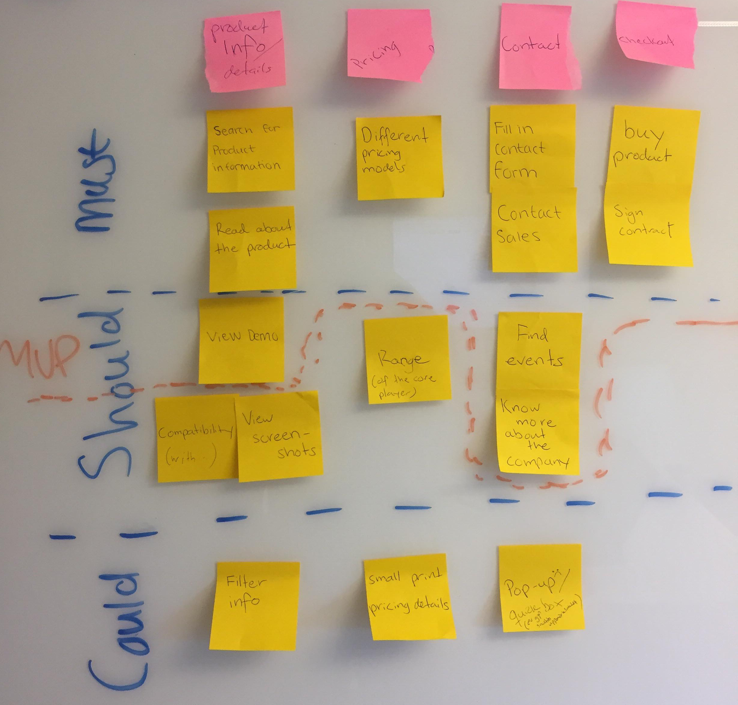 product
Info
details
pricing
Contact
checkout
Must
Search for
Product
information
Different
pricing
models
Fill in
contact
form
buy
product
Read about
the product
Contact
Sales
Sign
contract
MVP
Should
View Demo
Range
(of the core
player)
Find
events
Compatibility
(with )
View
screen-
shots
Know
more
about
the
company
Could
Filter
info
Small print
pricing details
Pop-up
box